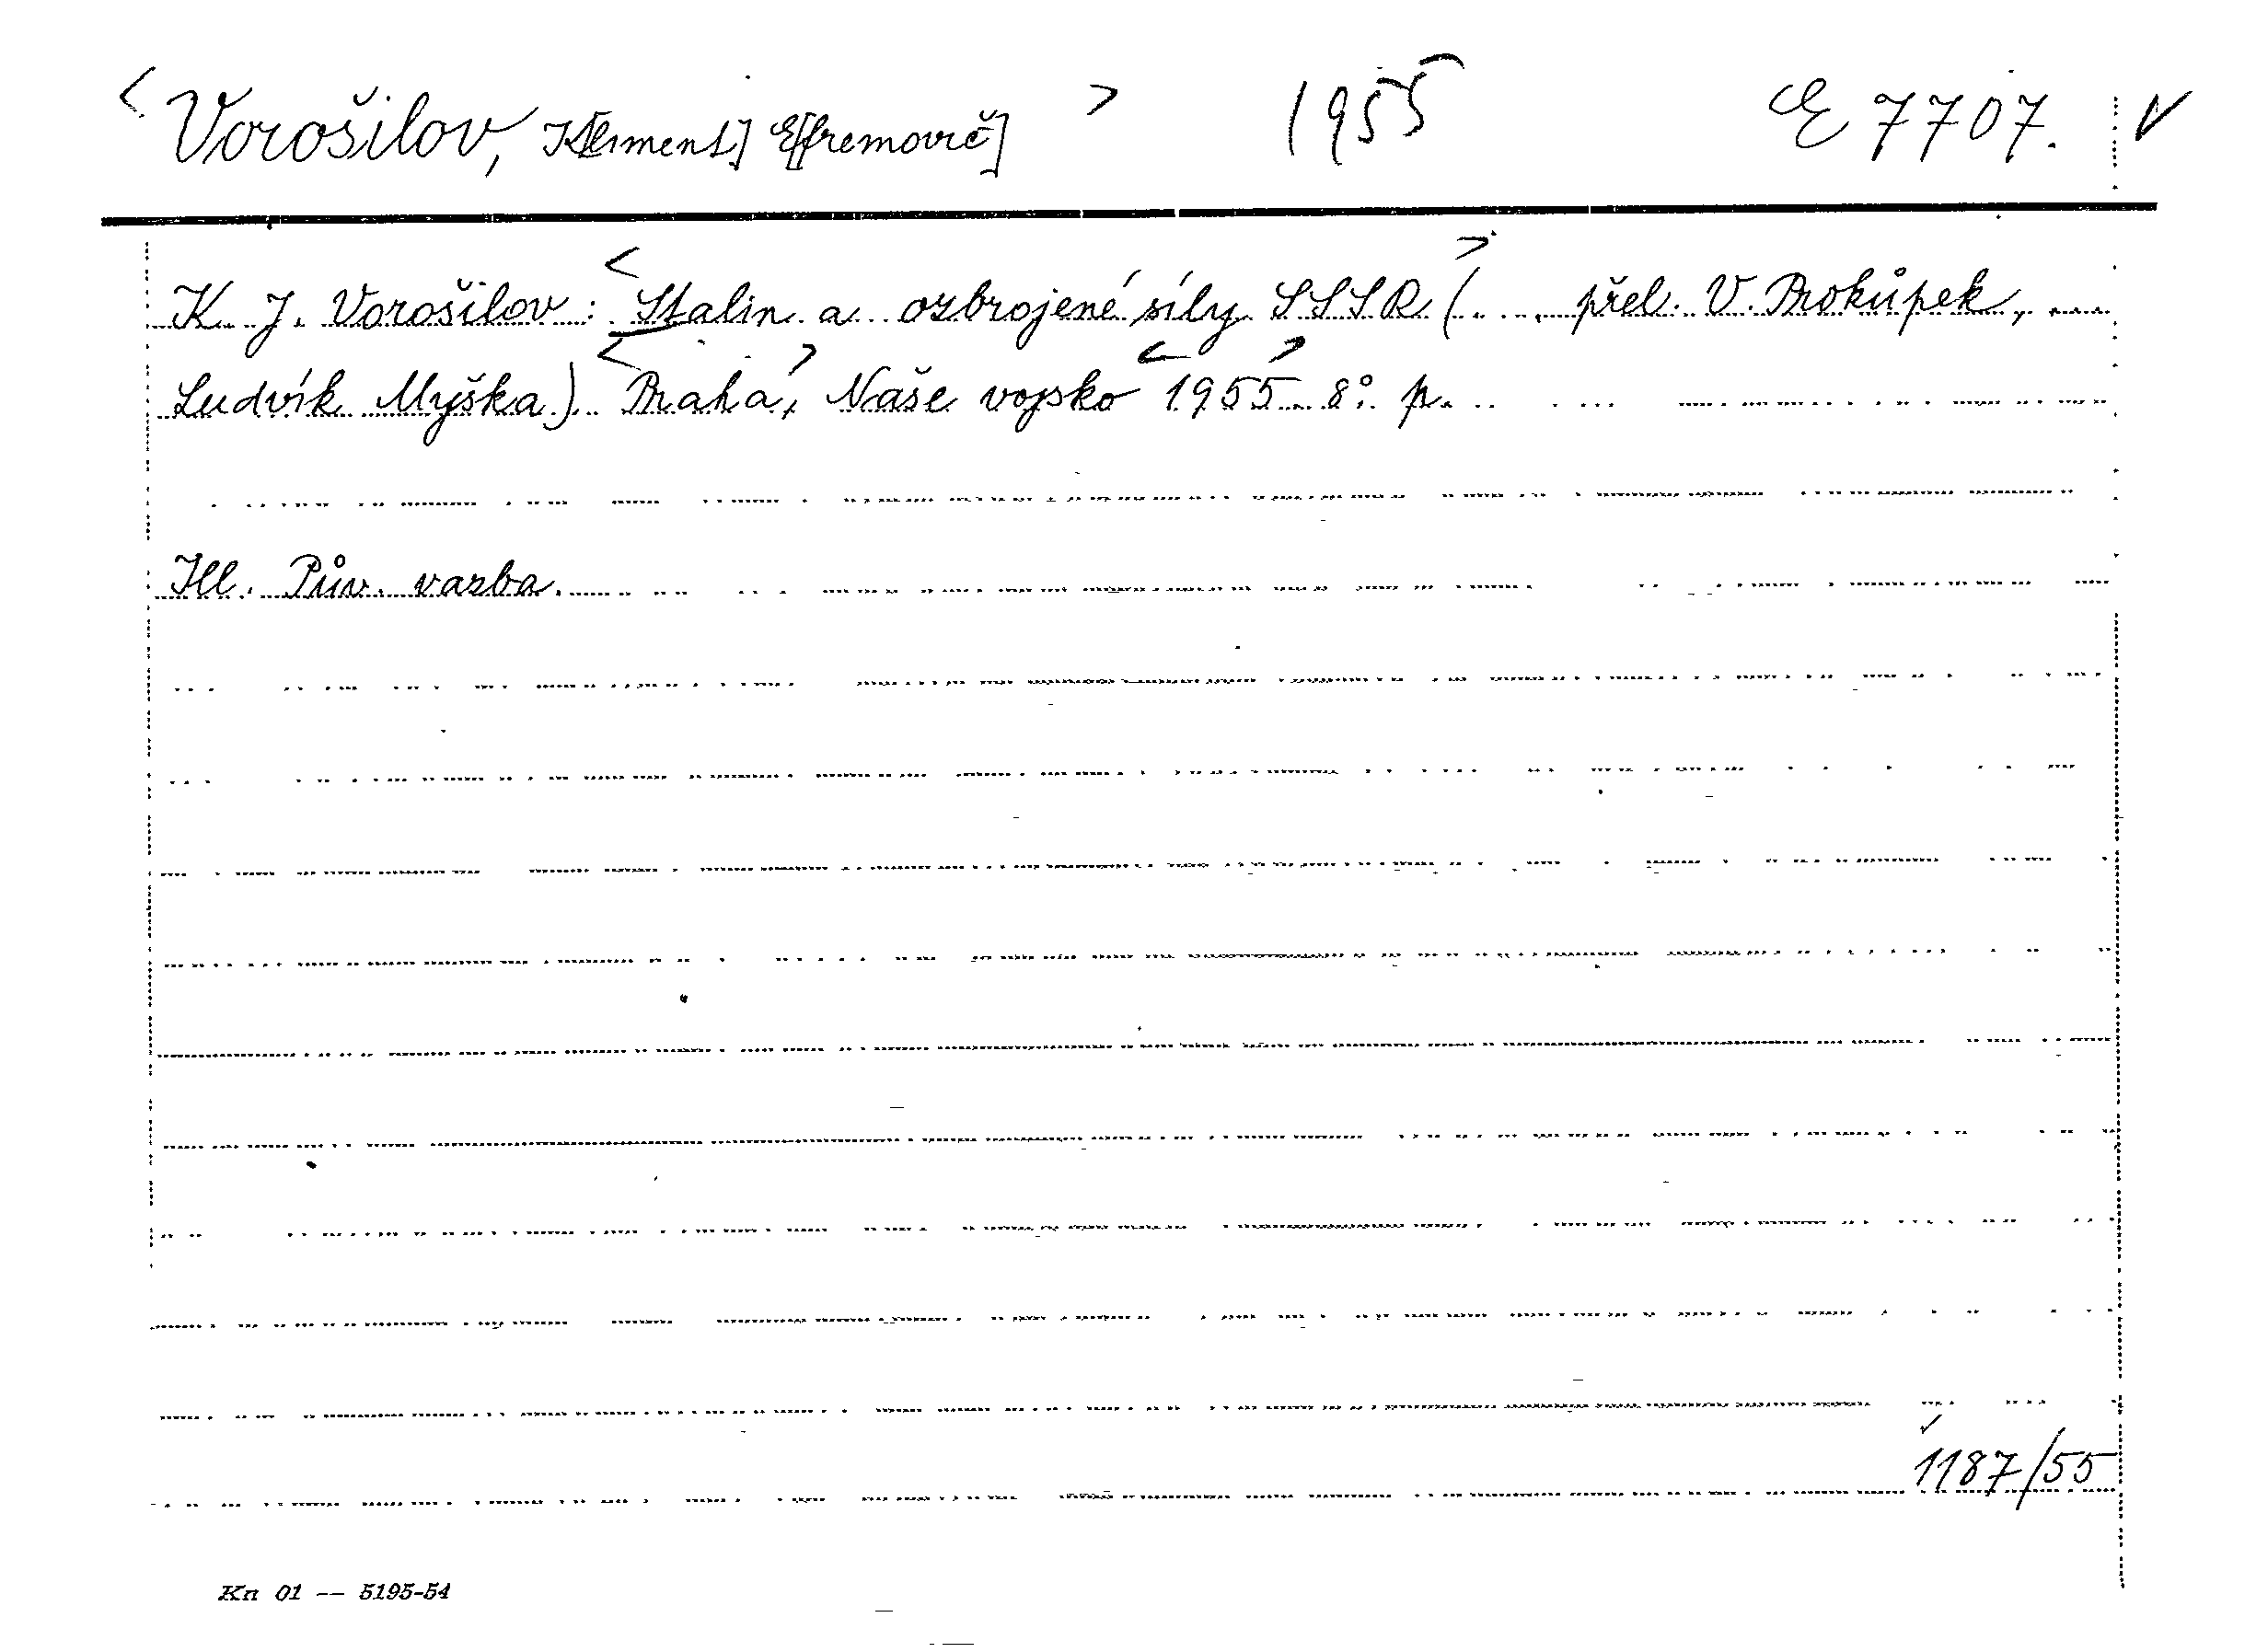 <Vorošilov, K[liment] E[fremovič]> 1955 E 7707. V
K. J. Vorošilov: <Stalin a ozbrojené síly SSSR> (... přel. V. Prokůpek, ...
Ludvík Myška) <Praha>, Naše vojsko <1955> 8°. p.
Ill. Pův. vazba.
1187/55
Kn 01 -- 5195-54